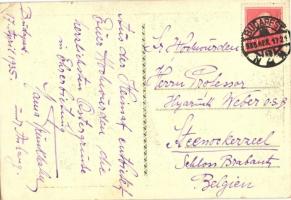 Budapest
17. April 1935.
Aus der Heimat entbietet
Euer Hochwürden die
herzlichsten Ostergrüsse
in Ehrerbietung
und
BUDAPEST
935 APR. 17 21
Sr Hochwürden
Herrn Professor
Weber O.S.B.
Steenockerzeel
Schloss Brabant
Belgien